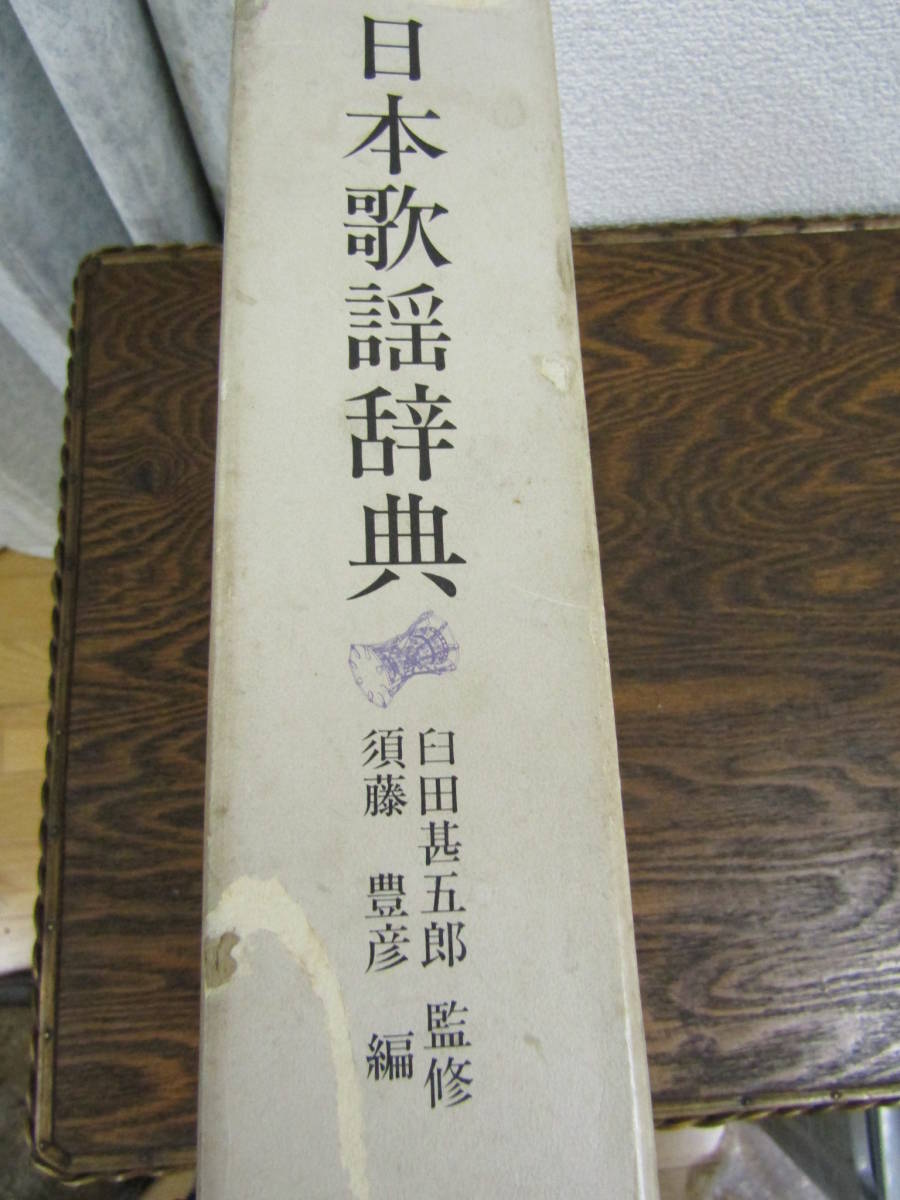 日本歌謡辞典
臼田甚五郎 監修
須藤 豊彦 編